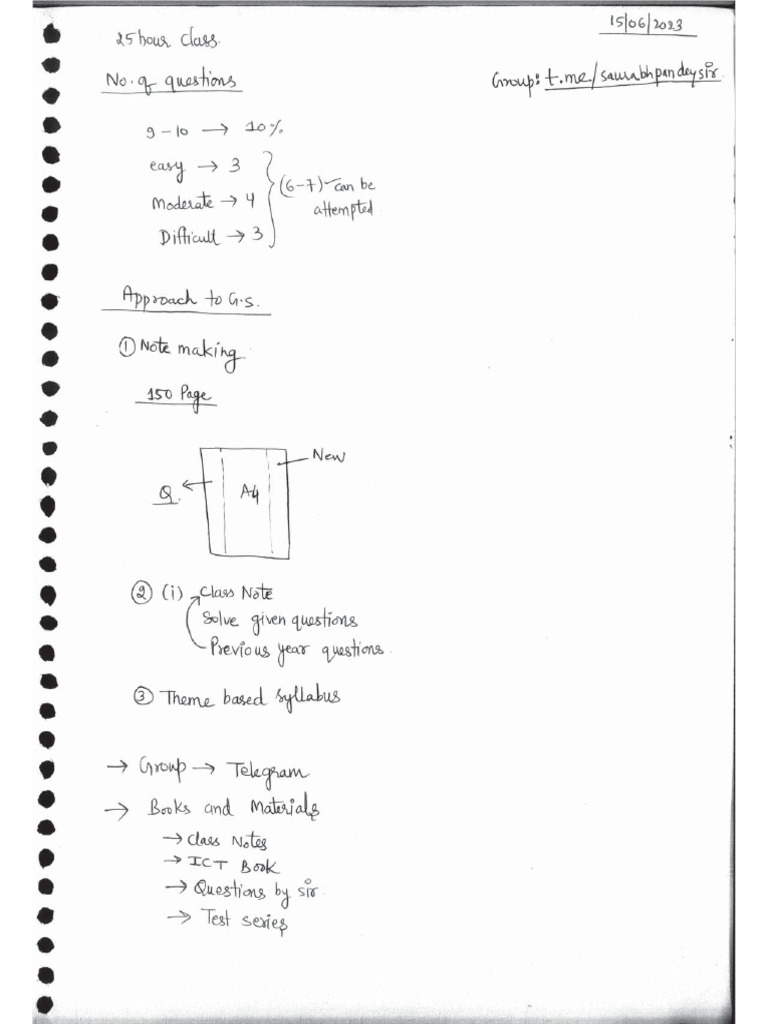 15/06/2023
25 hour class.
No. of questions
Group: t.me/saurabhpandeysir.
9-10 → 10%
easy → 3
Moderate → 4
Difficult → 3
(6-7) can be
attempted
Approach to G.S.
① Note making
150 Page
New
Q.
A4
② (i) Class Note
Solve given questions
Previous year questions
③ Theme based syllabus
→ Group → Telegram
→ Books and Materials
→ Class Notes
→ ICT Book
→ Questions by sir
→ Test series